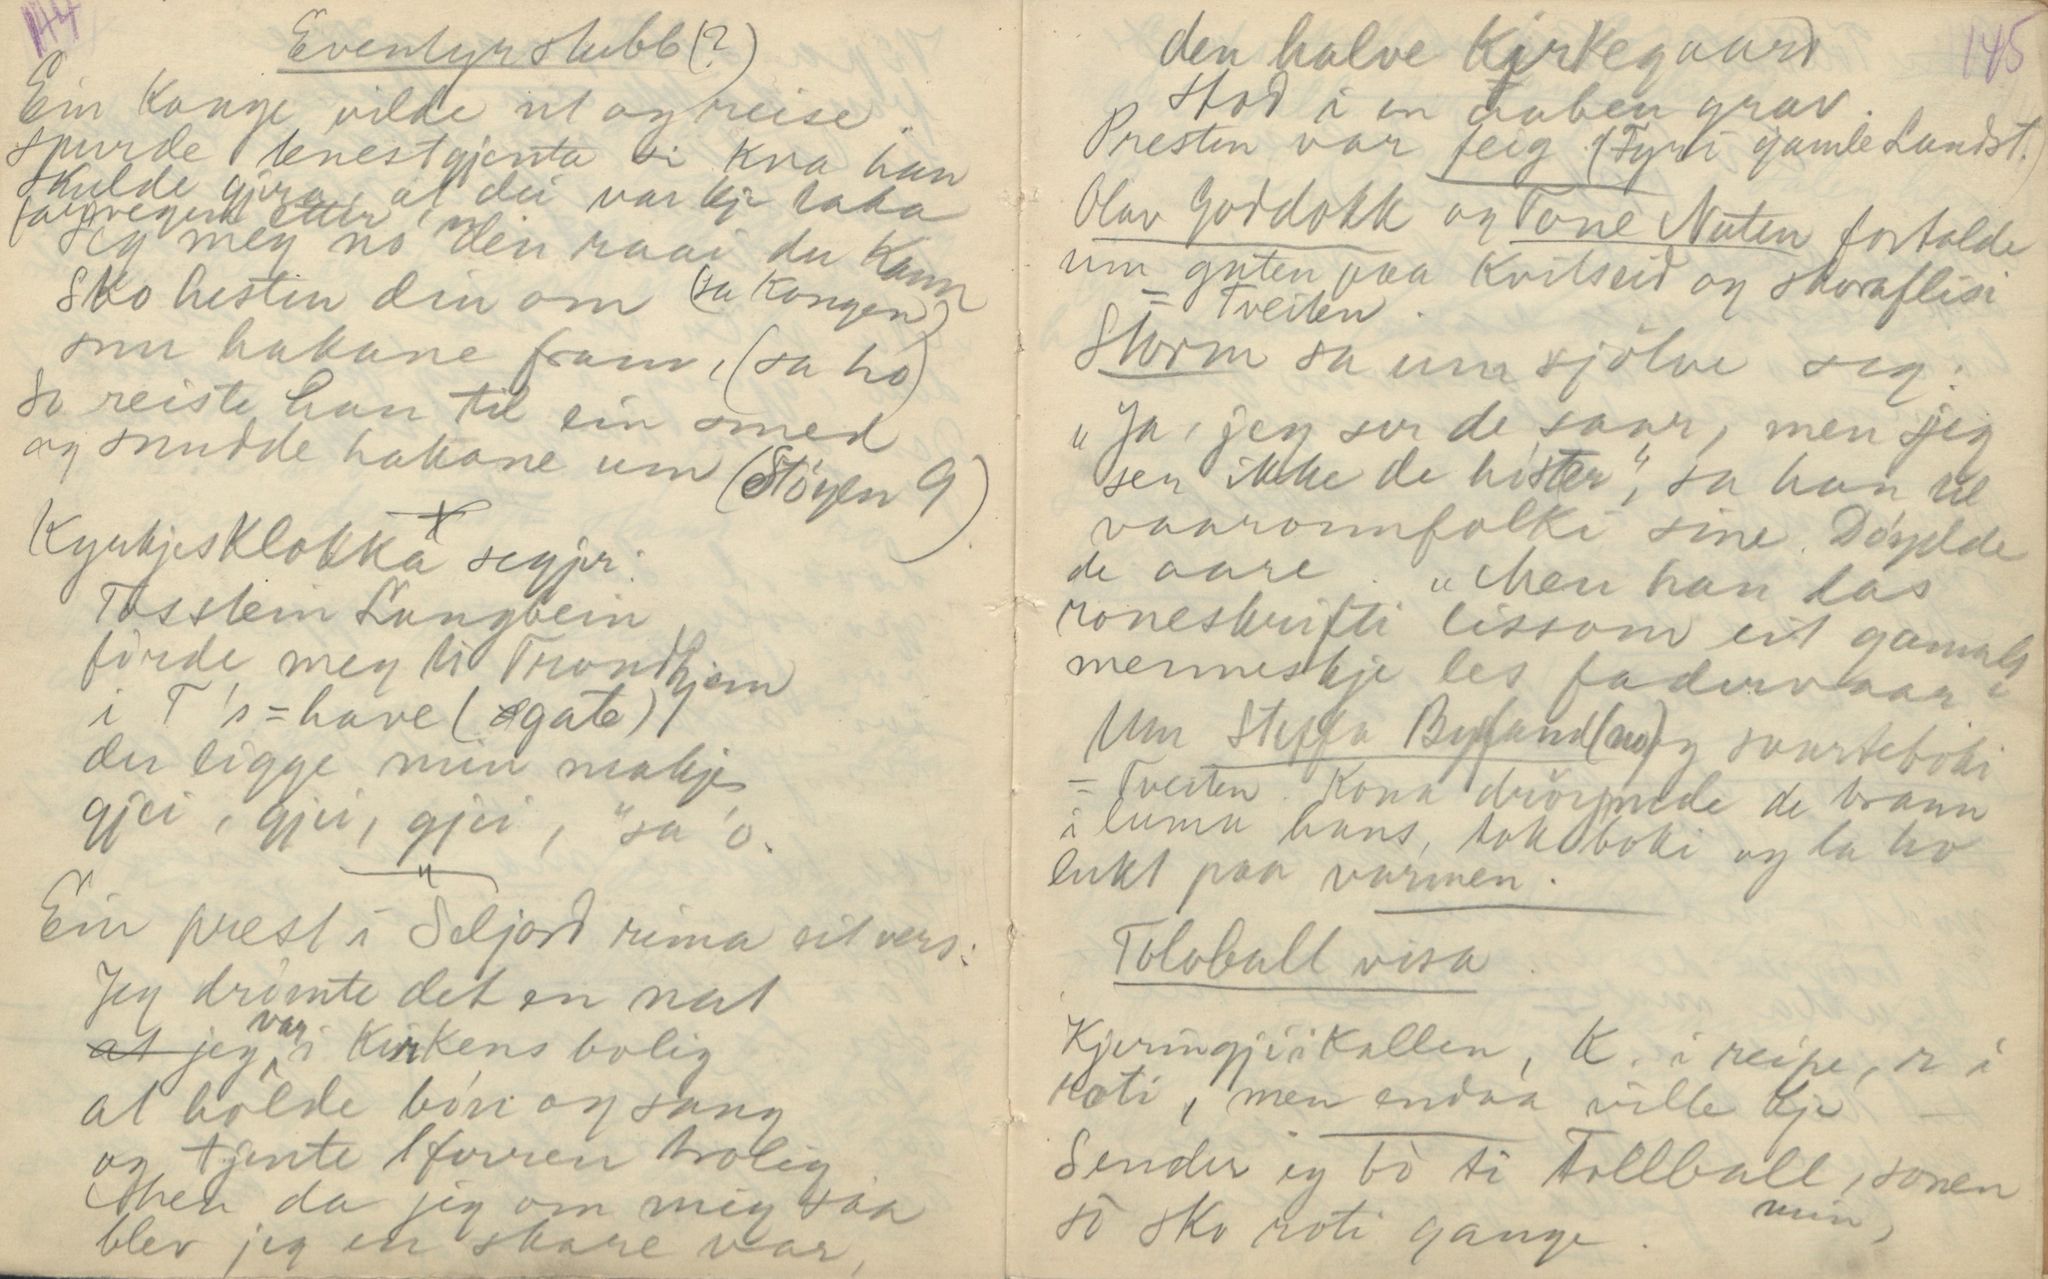 144
Eventyrstubb (?)
Ein Konge vilde ut og reise.
spurde tenestgjenta si kva han
skulde gjera, at dei var kje taka
farvegen etter
Seg meg no den raai du kann
sko hesten din om (sa kongen)
snu hakane fram, (sa ho)
So reiste han til ein smed
og snudde hakane um (Støylen 9)
Kyrkjesklokka segjer:
Tosstein Langbein
førde meg ti Trondhjem
i T's = have (gate)
der ligge min makje
gjei, gjei, gjei, "sa 'o.
Ein prest i Seljord rima eit vers:
Jeg drømte det en nat
at jeg var i Kirkens bolig
at holde bøn og sang
og tjente Herren trolig
Men da jeg om mig saa
blev jeg en skare var,
145
den halve Kirkegaard
stod i en aaben grav.
Presten var feig. (Fyri gamle Landst.)
Olav Goddokk og Tone Nuten fortalde
um guten paa Kvitseid og skoraflisi
= Tveiten.
Storm sa um sjølve seg:
"Ja, jeg ser de saar, men jeg
ser ikke de hister", sa han til
vaaronnfolki sine. Døydde
de aare. "Men han las
roneskrifti lissom eit gamalt
menneskje les fadervaar"
Um Steffa Bygland (no) og svarteboki
= Tveiten. Kona drøymde de brann
i luma hans, tok boki og la ho
lukt paa varmen.
Toloball visa
Kjeringji i Kallen, K. i reipe, r i
roti, men endaa ville kje –
Sender eg bò ti Tollball, sonen
min,
so sko roti gange.